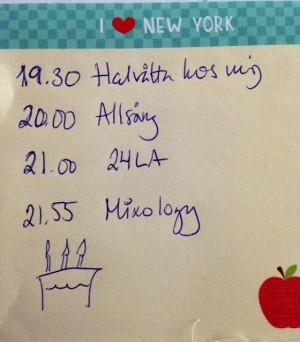 I ❤ NEW YORK
19.30 Halvåtta hos mig
20.00 Allsång
21.00 24LA
21.55 Mixology